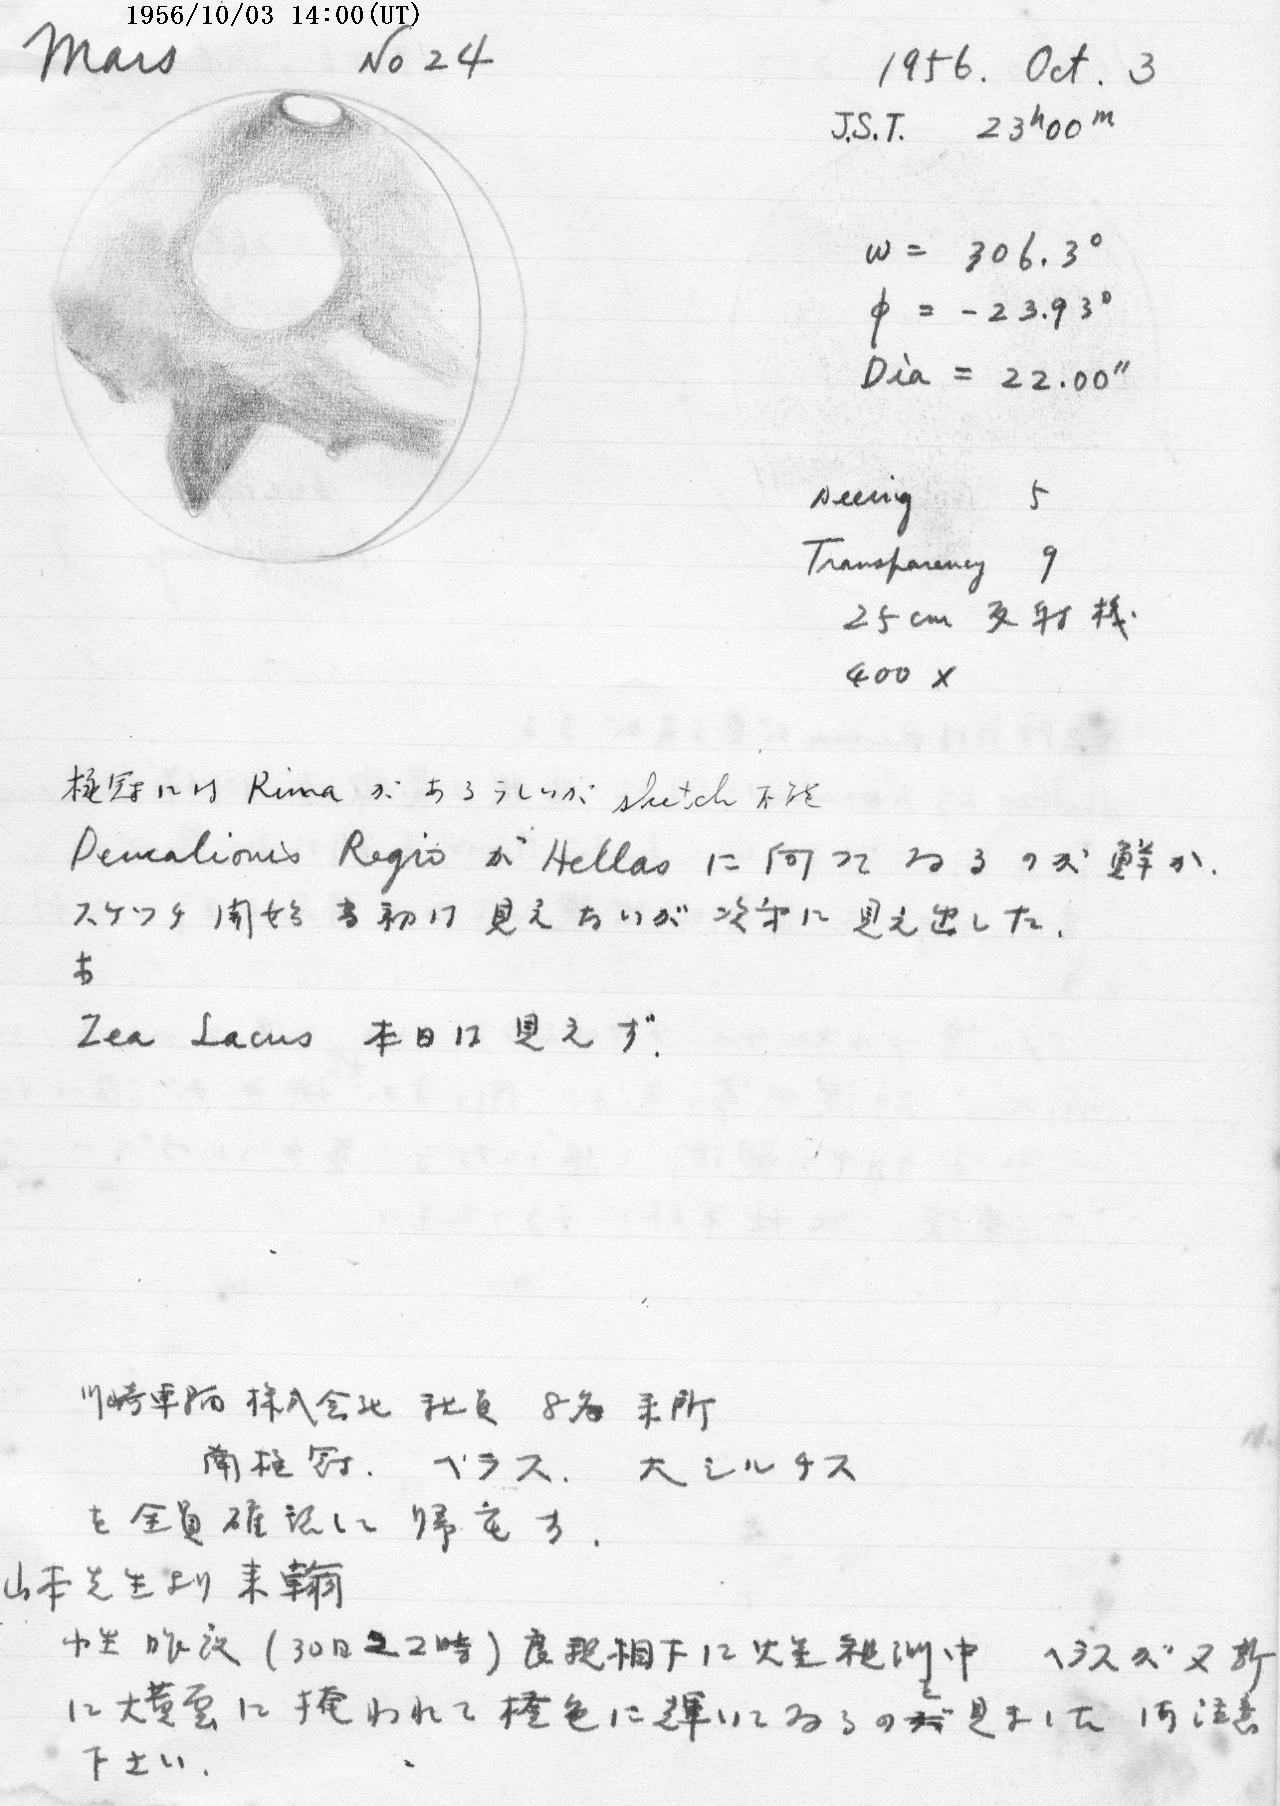 1956/10/03 14:00(UT)
Mars No 24
1956. Oct. 3
J.S.T. 23h00m
ω = 306.3°
φ = -23.93°
Dia = 22.00″
seeing 5
Transparency 9
25cm 反射機
400 x
極冠には Rima があるらしいが sketch 不能
Deucalionis Regio が Hellas に向つてゐるのが鮮か.
スケッチ開始当初は見えないが次第に見え出した.
Zea Lacus 本日は見えず.
川崎車輌株式会社 社員 8名 来所
南極冠. ヘラス. 大シルチス
を全員確認して帰宅す.
山本先生より来翰
小生昨夜 (30日22時) 良視相下に火星観測中 ヘラスが又新
に大黄雲に掩われて橙色に輝いてゐるのを見ました 御注意
下さい.